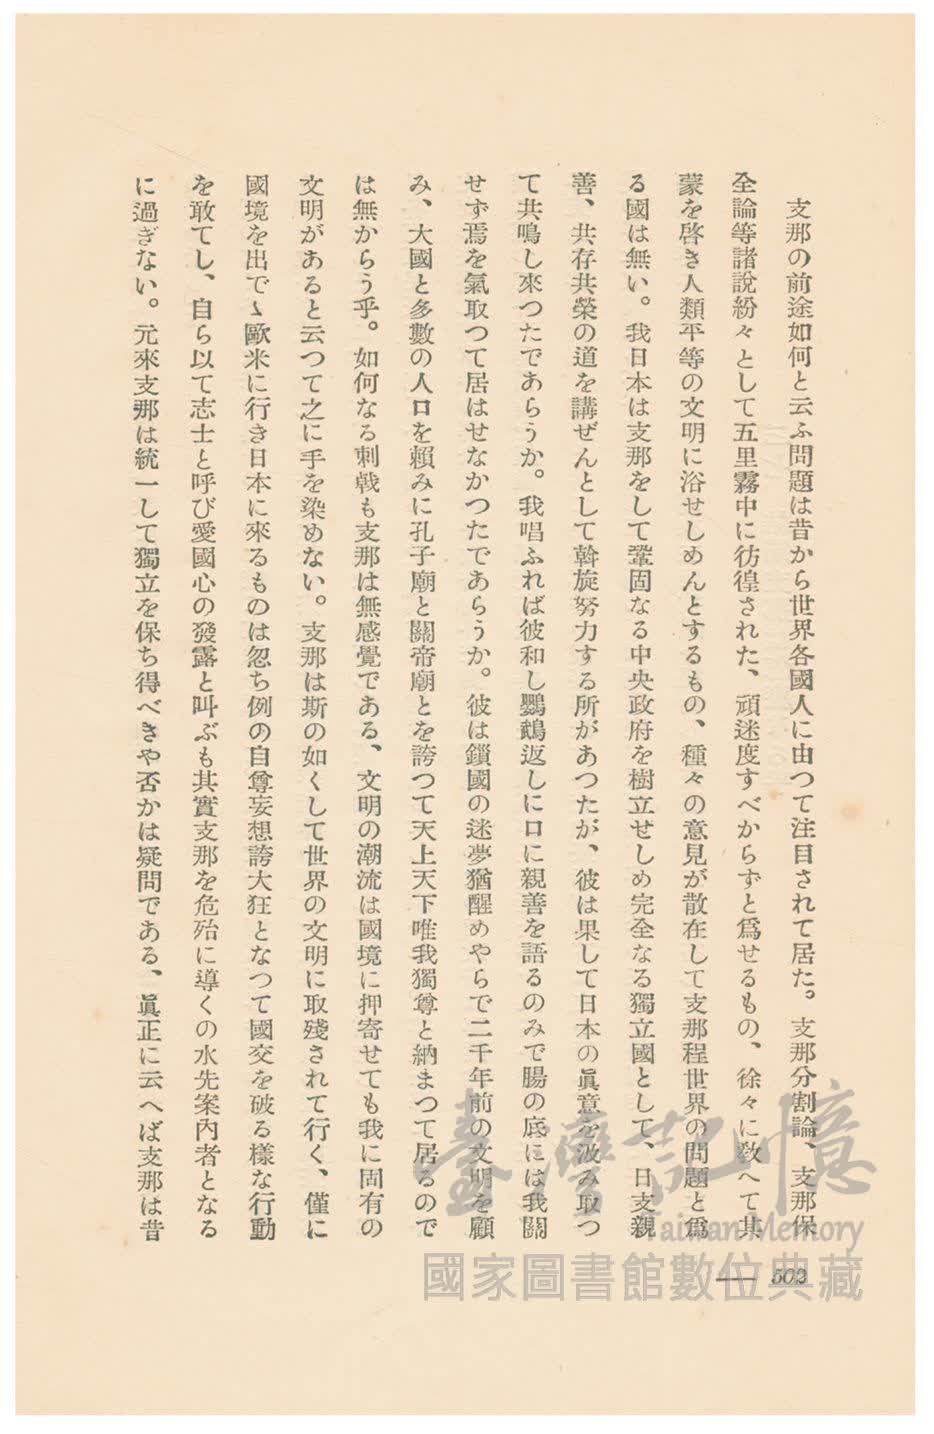 支那の前途如何と云ふ問題は昔から世界各國人に由つて注目されて居た。支那分割論、支那保
全論等諸說紛々として五里霧中に彷徨された、頑迷度すべからずと爲せるもの、徐々に敎へて其
蒙を啓き人類平等の文明に浴せしめんとするもの、種々の意見が散在して支那程世界の問題と爲
る國は無い。我日本は支那をして鞏固なる中央政府を樹立せしめ完全なる獨立國として、日支親
善、共存共榮の道を講ぜんとして斡旋努力する所があつたが、彼は果して日本の眞意を汲み取つ
て共鳴し來つたであらうか。我唱ふれば彼和し鸚鵡返しに口に親善を語るのみで腸の底には我關
せず焉を氣取つて居はせなかつたであらうか。彼は鎖國の迷夢猶醒めやらで二千年前の文明を顧
み、大國と多數の人口を賴みに孔子廟と關帝廟とを誇つて天上天下唯我獨尊と納まつて居るので
は無からう乎。如何なる刺戟も支那は無感覺である、文明の潮流は國境に押寄せても我に固有の
文明があると云つて之に手を染めない。支那は斯の如くして世界の文明に取殘されて行く、僅に
國境を出でゝ歐米に行き日本に來るものは忽ち例の自尊妄想誇大狂となつて國交を破る樣な行動
を敢てし、自ら以て志士と呼び愛國心の發露と叫ぶも其實支那を危殆に導くの水先案內者となる
に過ぎない。元來支那は統一して獨立を保ち得べきや否かは疑問である、眞正に云へば支那は昔
502
臺灣記憶
Taiwan Memory
國家圖書館數位典藏